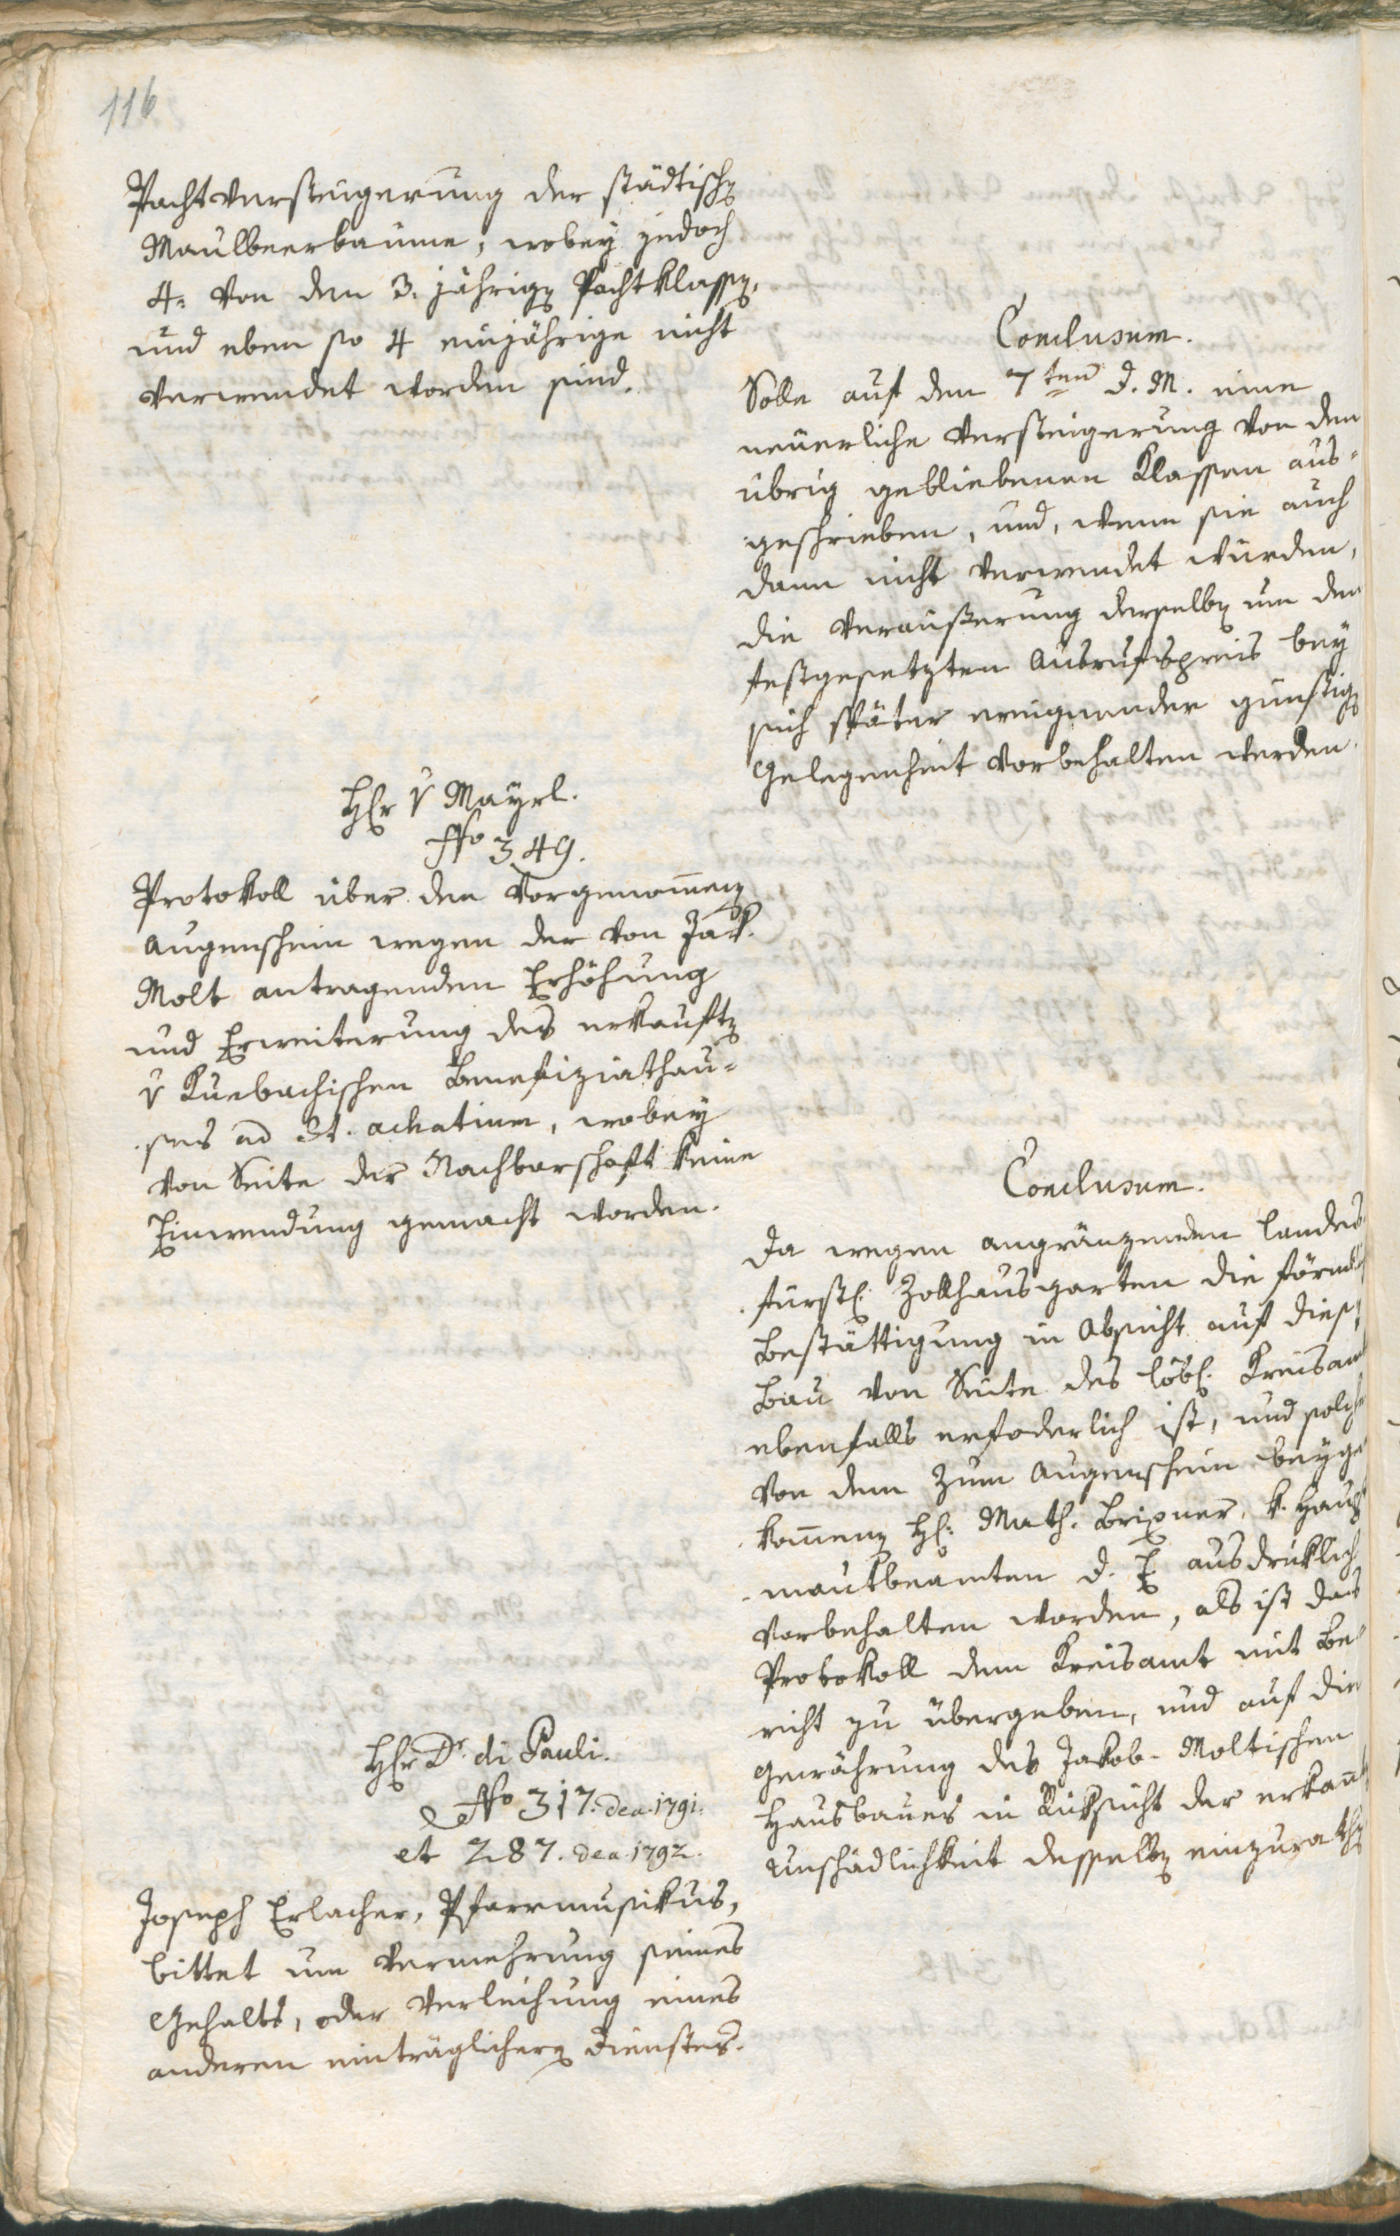 116
Pachtversteigerung der städtischen
Maulbeerbäume, wobey jedoch
4. von den 3. jährigen Pachtklassen,
und eben so 4 einjährige nicht
verwendet worden sind.
Conclusum.
Solle auf den 7ten d. M. eine
neuerliche Versteigerung von den
übrig gebliebenen Klassen aus-
geschrieben, und, wenn sie auch
dann nicht verwendet würden,
die Veräußerung derselben um den
festgesetzten Ausrufspreis bey
sich später ereignender günstigen
Gelegenheit vorbehalten werden.
Hr v Mayrl.
No 349.
Protokoll über den vorgenommenen
Augenschein wegen der von Jak.
Molt antragenden Erhöhung
und Erweiterung des erkauften
v Kuebachischen Benefiziathau-
ses ad St. achatium, wobey
von Seite der Nachbarschaft keine
Einwendung gemacht worden.
Conclusum.
Da wegen angränzenden landes-
fürstl. Zollhausgarten die förml.
Bestättigung in Absicht auf diesen
Bau von Seite des löbl. Kreisamt
ebenfalls erfoderlich ist, und solche
von dem zum Augenschein beyge-
kommenen H. Math. Brixner, k. Haupt
mautbeamten d. E ausdrücklich
vorbehalten worden, als ist das
Protokoll dem Kreisamt mit Be-
richt zu übergeben, und auf die
Gewährung des Jakob-Moltischen
Hausbaues in Rücksicht der erkannten
Unschädlichkeit desselben einzurathen
Hr Dr. di Pauli.
No 317. dea. 1791.
et 287. dea. 1792.
Joseph Erlacher, Pfarrmusikus,
bittet um Vermehrung seines
Gehalts, oder Verleihung eines
anderen einträglichern Dienstes.